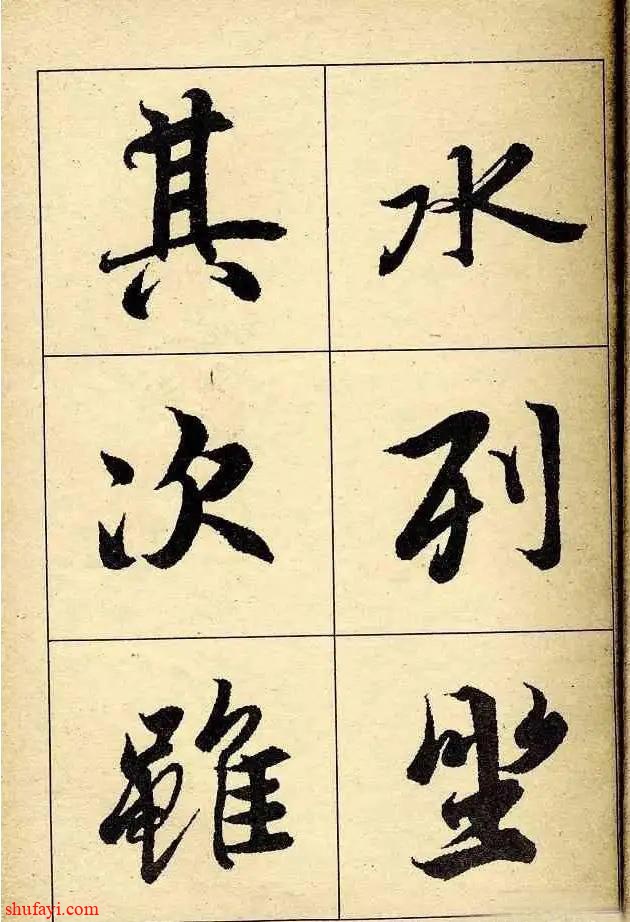 水列坐
其次雖
shufayi.com